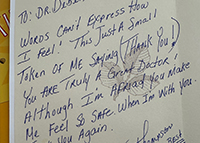 TO: DR.
Words Can't Express How
I Feel! This Just A Small
Token OF ME Saying (Thank You!)
You ARE Truly A "Great Doctor!
Although I'm Afraid You Make
Me Feel So Safe. When I'm With You.
You Again.
Thompson